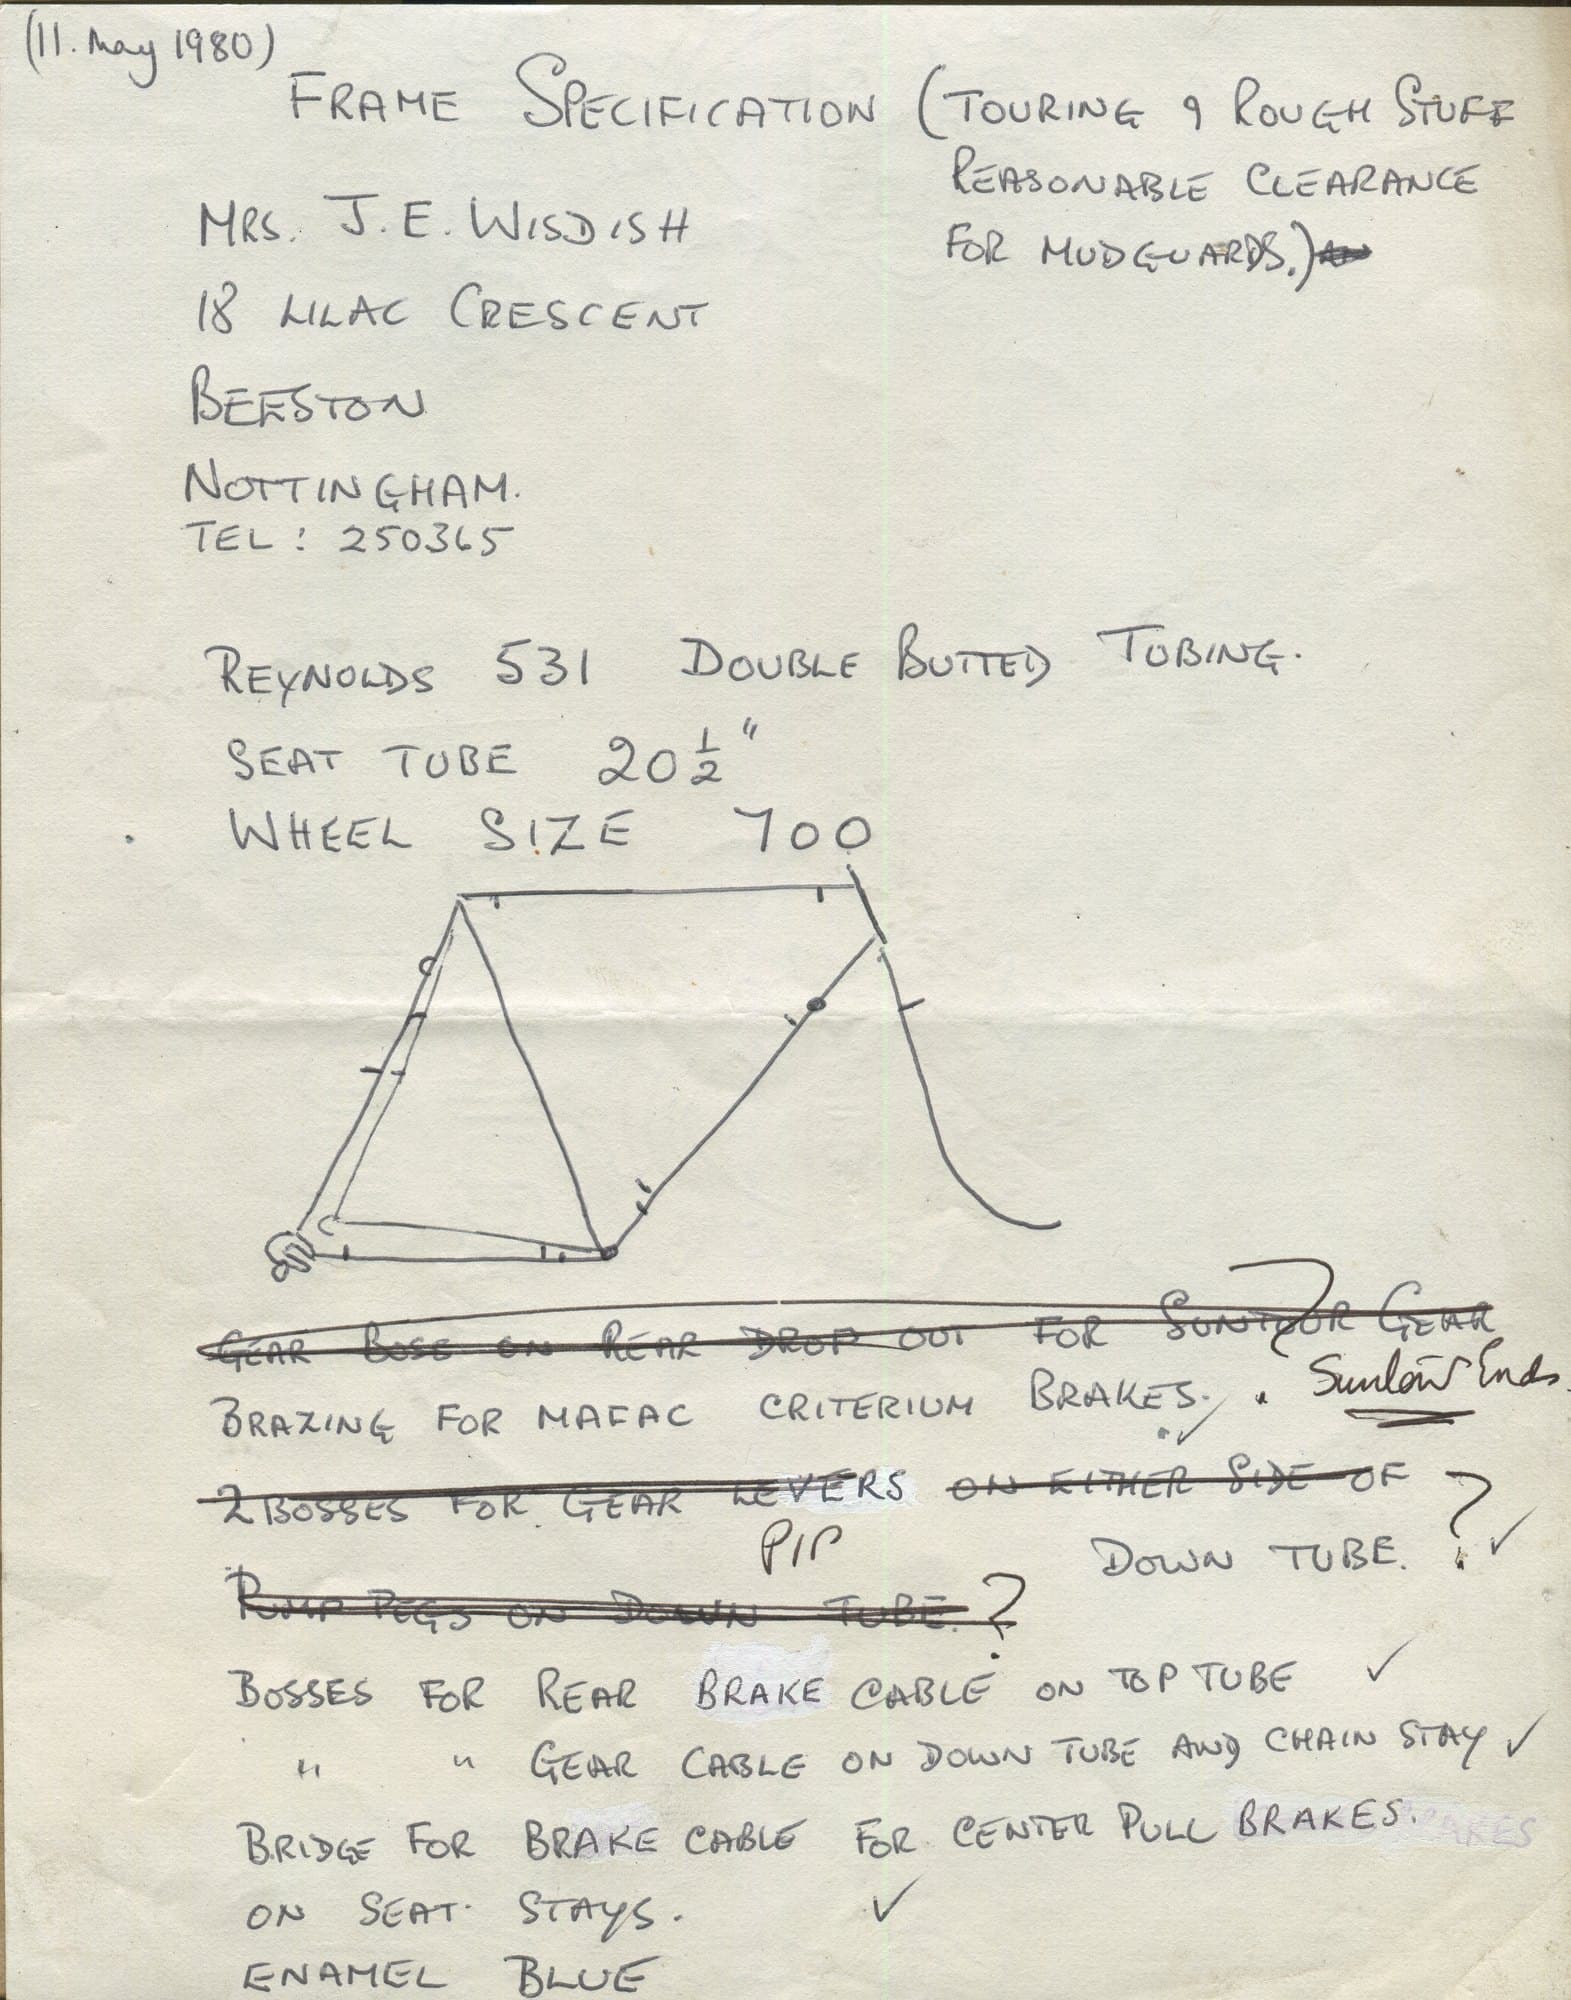 (11. May 1980)
FRAME SPECIFICATION (TOURING & ROUGH STUFF
REASONABLE CLEARANCE
FOR MUDGUARDS.)
MRS. J. E. WISDISH
18 LILAC CRESCENT
BEESTON
NOTTINGHAM.
TEL: 250365
REYNOLDS 531 DOUBLE BUTTED TUBING.
SEAT TUBE 20 1/2"
WHEEL SIZE 700
GEAR BOSE ON REAR DROP OUT FOR SUNTOUR GEAR
Suntour Ends.
BRAZING FOR MAFAC CRITERIUM BRAKES. ✓
2 BOSSES FOR GEAR LEVERS ON EITHER SIDE OF
PIP DOWN TUBE. ? ✓
PUMP PEGS ON DOWN TUBE. ?
BOSSES FOR REAR BRAKE CABLE ON TOP TUBE ✓
" " GEAR CABLE ON DOWN TUBE AND CHAIN STAY ✓
BRIDGE FOR BRAKE CABLE FOR CENTER PULL BRAKES.
ON SEAT STAYS. ✓
ENAMEL BLUE